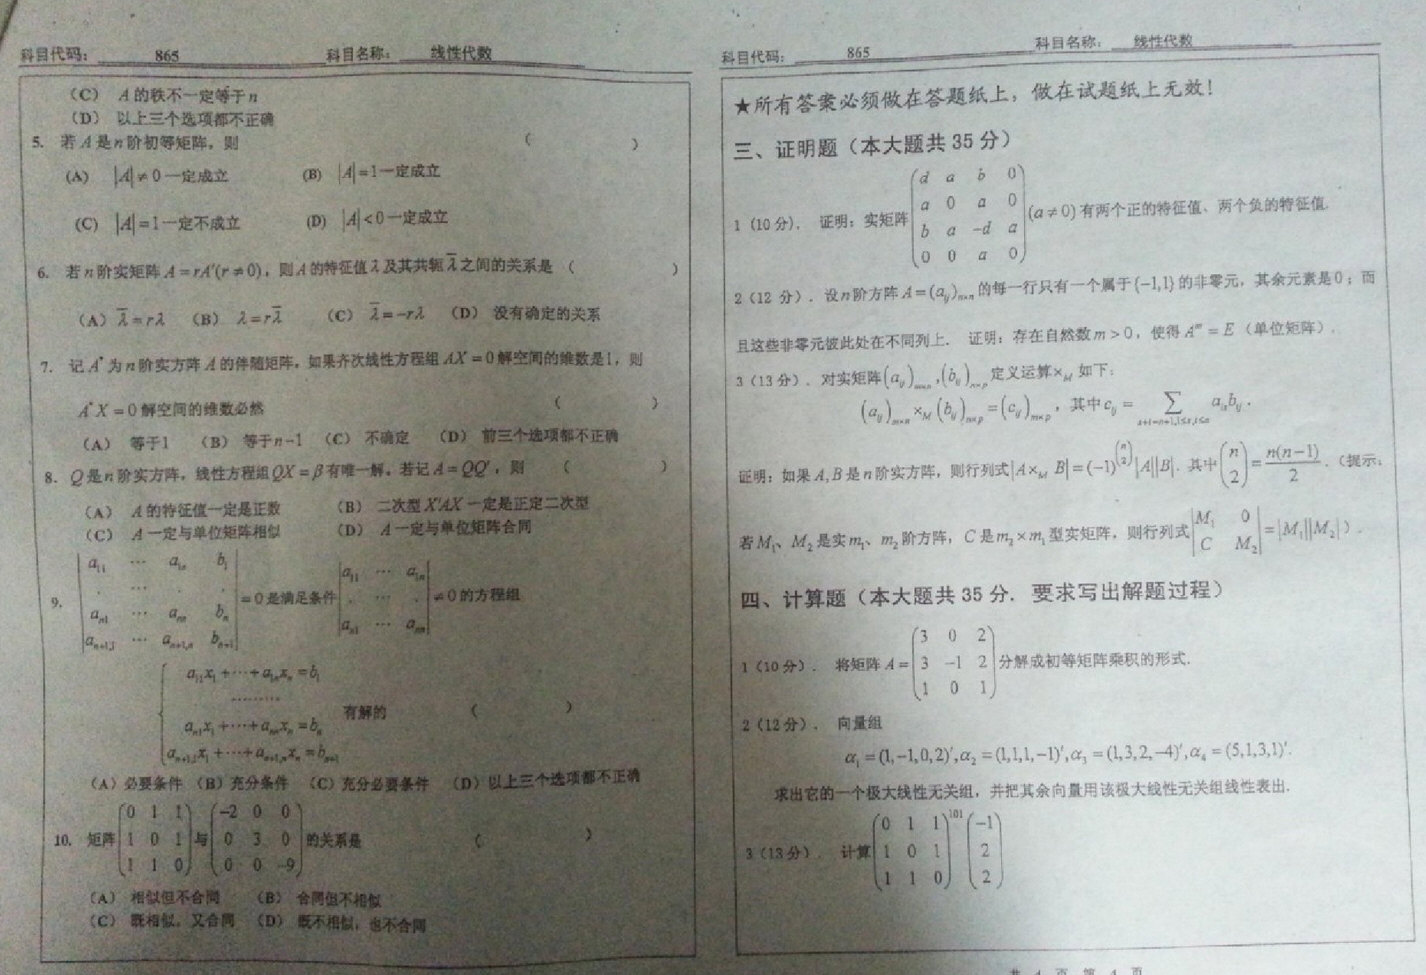 科目代码： 865 科目名称： 线性代数
（C） A 的秩不一定等于 n
（D） 以上三个选项都不正确
5. 若 A 是 n 阶初等矩阵，则 （ ）
(A) |A| ≠ 0 一定成立 (B) |A| = 1 一定成立
(C) |A| = 1 一定不成立 (D) |A| < 0 一定成立
6. 若 n 阶实矩阵 A = rA′(r ≠ 0)，则 A 的特征值 λ 及其共轭 λ̄ 之间的关系是 （ ）
（A） λ̄ = rλ （B） λ = rλ̄ （C） λ̄ = −rλ （D） 没有确定的关系
7. 记 A* 为 n 阶实方阵 A 的伴随矩阵，如果齐次线性方程组 AX = 0 解空间的维数是1，则
A*X = 0 解空间的维数必然 （ ）
（A） 等于1 （B） 等于 n−1 （C） 不确定 （D） 前三个选项都不正确
8. Q 是 n 阶实方阵，线性方程组 QX = β 有唯一解，若记 A = QQ′，则 （ ）
（A） A 的特征值一定是正数 （B） 二次型 X′AX 一定是正定二次型
（C） A 一定与单位矩阵相似 （D） A 一定与单位矩阵合同
9. | a₁₁ ⋯ a₁ₙ b₁ ; . ⋯ . . ; aₙ₁ ⋯ aₙₙ bₙ ; aₙ₊₁,₁ ⋯ aₙ₊₁,ₙ bₙ₊₁ | = 0 是满足条件 | a₁₁ ⋯ a₁ₙ ; . ⋯ . ; aₙ₁ ⋯ aₙₙ | ≠ 0 的方程组
a₁₁x₁ + ⋯ + a₁ₙxₙ = b₁
⋯⋯⋯
aₙ₁x₁ + ⋯ + aₙₙxₙ = bₙ 有解的 （ ）
aₙ₊₁,₁x₁ + ⋯ + aₙ₊₁,ₙxₙ = bₙ₊₁
（A）必要条件 （B）充分条件 （C）充分必要条件 （D）以上三个选项都不正确
10. 矩阵 (0 1 1 ; 1 0 1 ; 1 1 0) 与 (−2 0 0 ; 0 3 0 ; 0 0 −9) 的关系是 （ ）
（A） 相似但不合同 （B） 合同但不相似
（C） 既相似，又合同 （D） 既不相似，也不合同
科目代码： 865 科目名称： 线性代数
★所有答案必须做在答题纸上，做在试题纸上无效！
三、证明题（本大题共 35 分）
1（10分）. 证明：实矩阵 (d a b 0 ; a 0 a 0 ; b a −d a ; 0 0 a 0) (a ≠ 0) 有两个正的特征值、两个负的特征值.
2（12 分）. 设 n 阶方阵 A = (aᵢⱼ)ₙₓₙ 的每一行只有一个属于 {−1,1} 的非零元，其余元素是 0；而
且这些非零元彼此处在不同列上. 证明：存在自然数 m > 0，使得 Aᵐ = E（单位矩阵）.
3（13分）. 对实矩阵 (aᵢⱼ)ₘₓₙ, (bᵢⱼ)ₙₓₚ 定义运算 ×_M 如下：
(aᵢⱼ)ₘₓₙ ×_M (bᵢⱼ)ₙₓₚ = (cᵢⱼ)ₘₓₚ，其中 cᵢⱼ = ∑_{s+t=n+1,1≤s,t≤n} aᵢₛbₜⱼ.
证明：如果 A, B 是 n 阶实方阵，则行列式 |A ×_M B| = (−1)^(n 2) |A||B|. 其中 (n 2) = n(n−1)/2.（提示：
若 M₁、M₂ 是实 m₁、m₂ 阶方阵，C 是 m₂ × m₁ 型实矩阵，则行列式 | M₁ 0 ; C M₂ | = |M₁||M₂|）.
四、计算题（本大题共 35 分. 要求写出解题过程）
1（10分）. 将矩阵 A = (3 0 2 ; 3 −1 2 ; 1 0 1) 分解成初等矩阵乘积的形式.
2（12分）. 向量组
α₁ = (1,−1,0,2)′, α₂ = (1,1,1,−1)′, α₃ = (1,3,2,−4)′, α₄ = (5,1,3,1)′.
求出它的一个极大线性无关组，并把其余向量用该极大线性无关组线性表出.
3（13分）. 计算 (0 1 1 ; 1 0 1 ; 1 1 0)¹⁰¹ (−1 ; 2 ; 2)
共 4 页 第 4 页